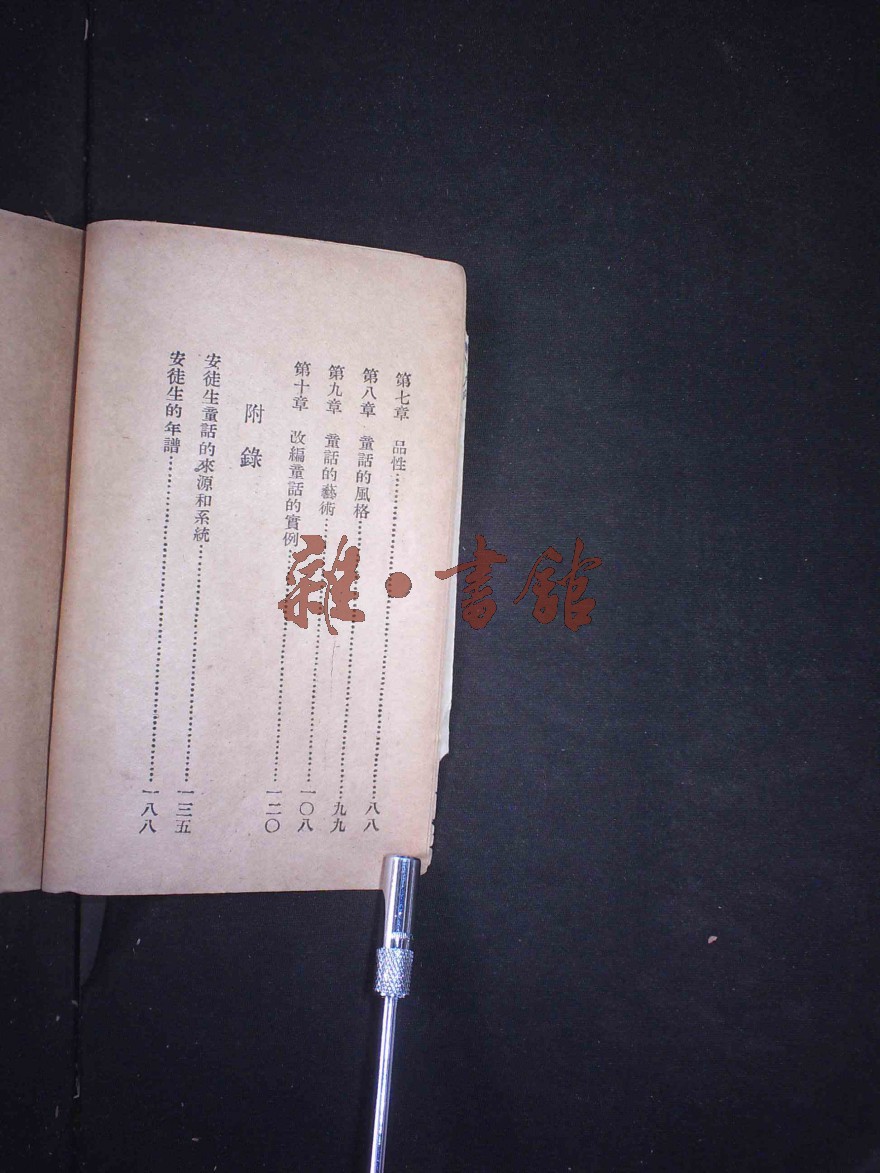 第七章 品性……八八
第八章 童話的風格……九九
第九章 童話的藝術……一〇八
第十章 改編童話的實例……一二〇
附錄
安徒生童話的來源和系統……一三五
安徒生的年譜……一八八
雜·書館